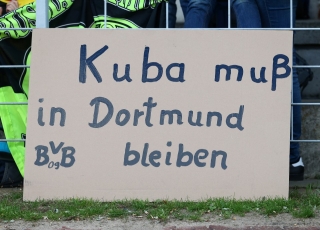 Kuba muß
in Dortmund
BVB 09 bleiben